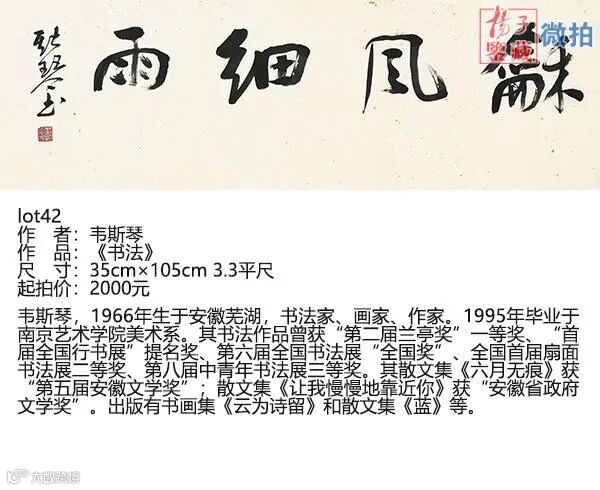 龢風細雨
揚子
鑒藏
微拍
lot42
作 者：韦斯琴
作 品：《书法》
尺 寸：35cm×105cm 3.3平尺
起拍价：2000元
韦斯琴，1966年生于安徽芜湖，书法家、画家、作家。1995年毕业于
南京艺术学院美术系。其书法作品曾获“第二届兰亭奖”一等奖、“首
届全国行书展”提名奖、第六届全国书法展“全国奖”、全国首届扇面
书法展二等奖、第八届中青年书法展三等奖。其散文集《六月无痕》获
“第五届安徽文学奖”；散文集《让我慢慢地靠近你》获“安徽省政府
文学奖”。出版有书画集《云为诗留》和散文集《蓝》等。
大数跨境